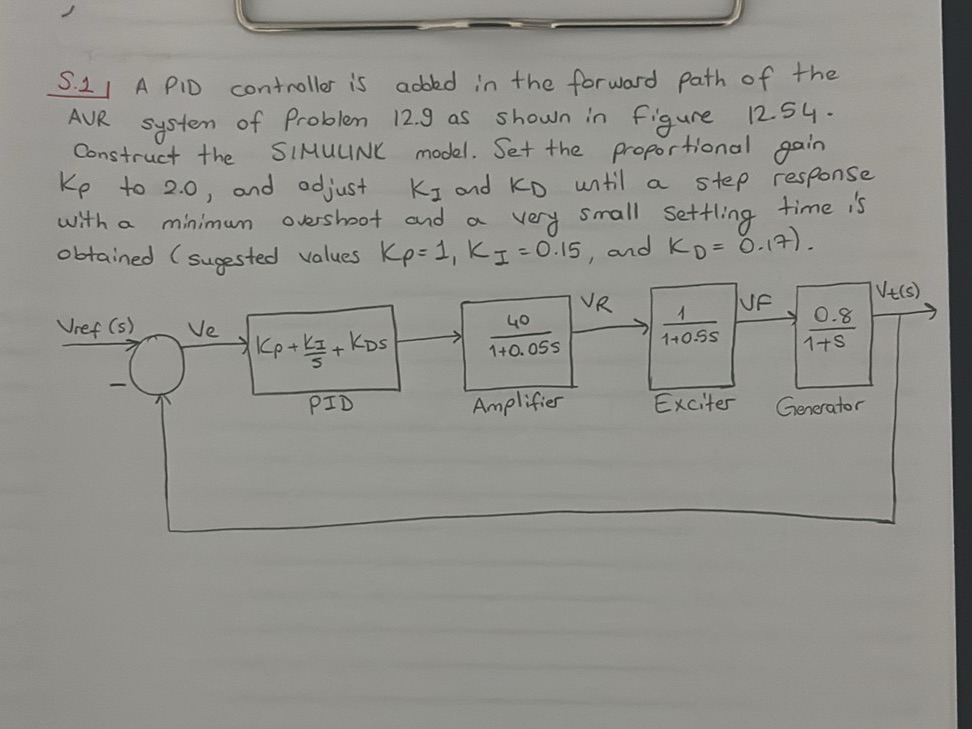 5.1| A PID controller is added in the forward path of the
AVR system of Problem 12.9 as shown in Figure 12.54.
Construct the SIMULINK model. Set the proportional gain
Kp to 2.0, and adjust KI and KD until a step response
with a minimum overshoot and a very small settling time is
obtained (sugested values Kp=1, KI=0.15, and KD=0.17).
Vref(s) Ve Kp+KI/s+KDs 40/1+0.05s VR 1/1+0.5s VF 0.8/1+s Vt(s)
−
PID Amplifier Exciter Generator